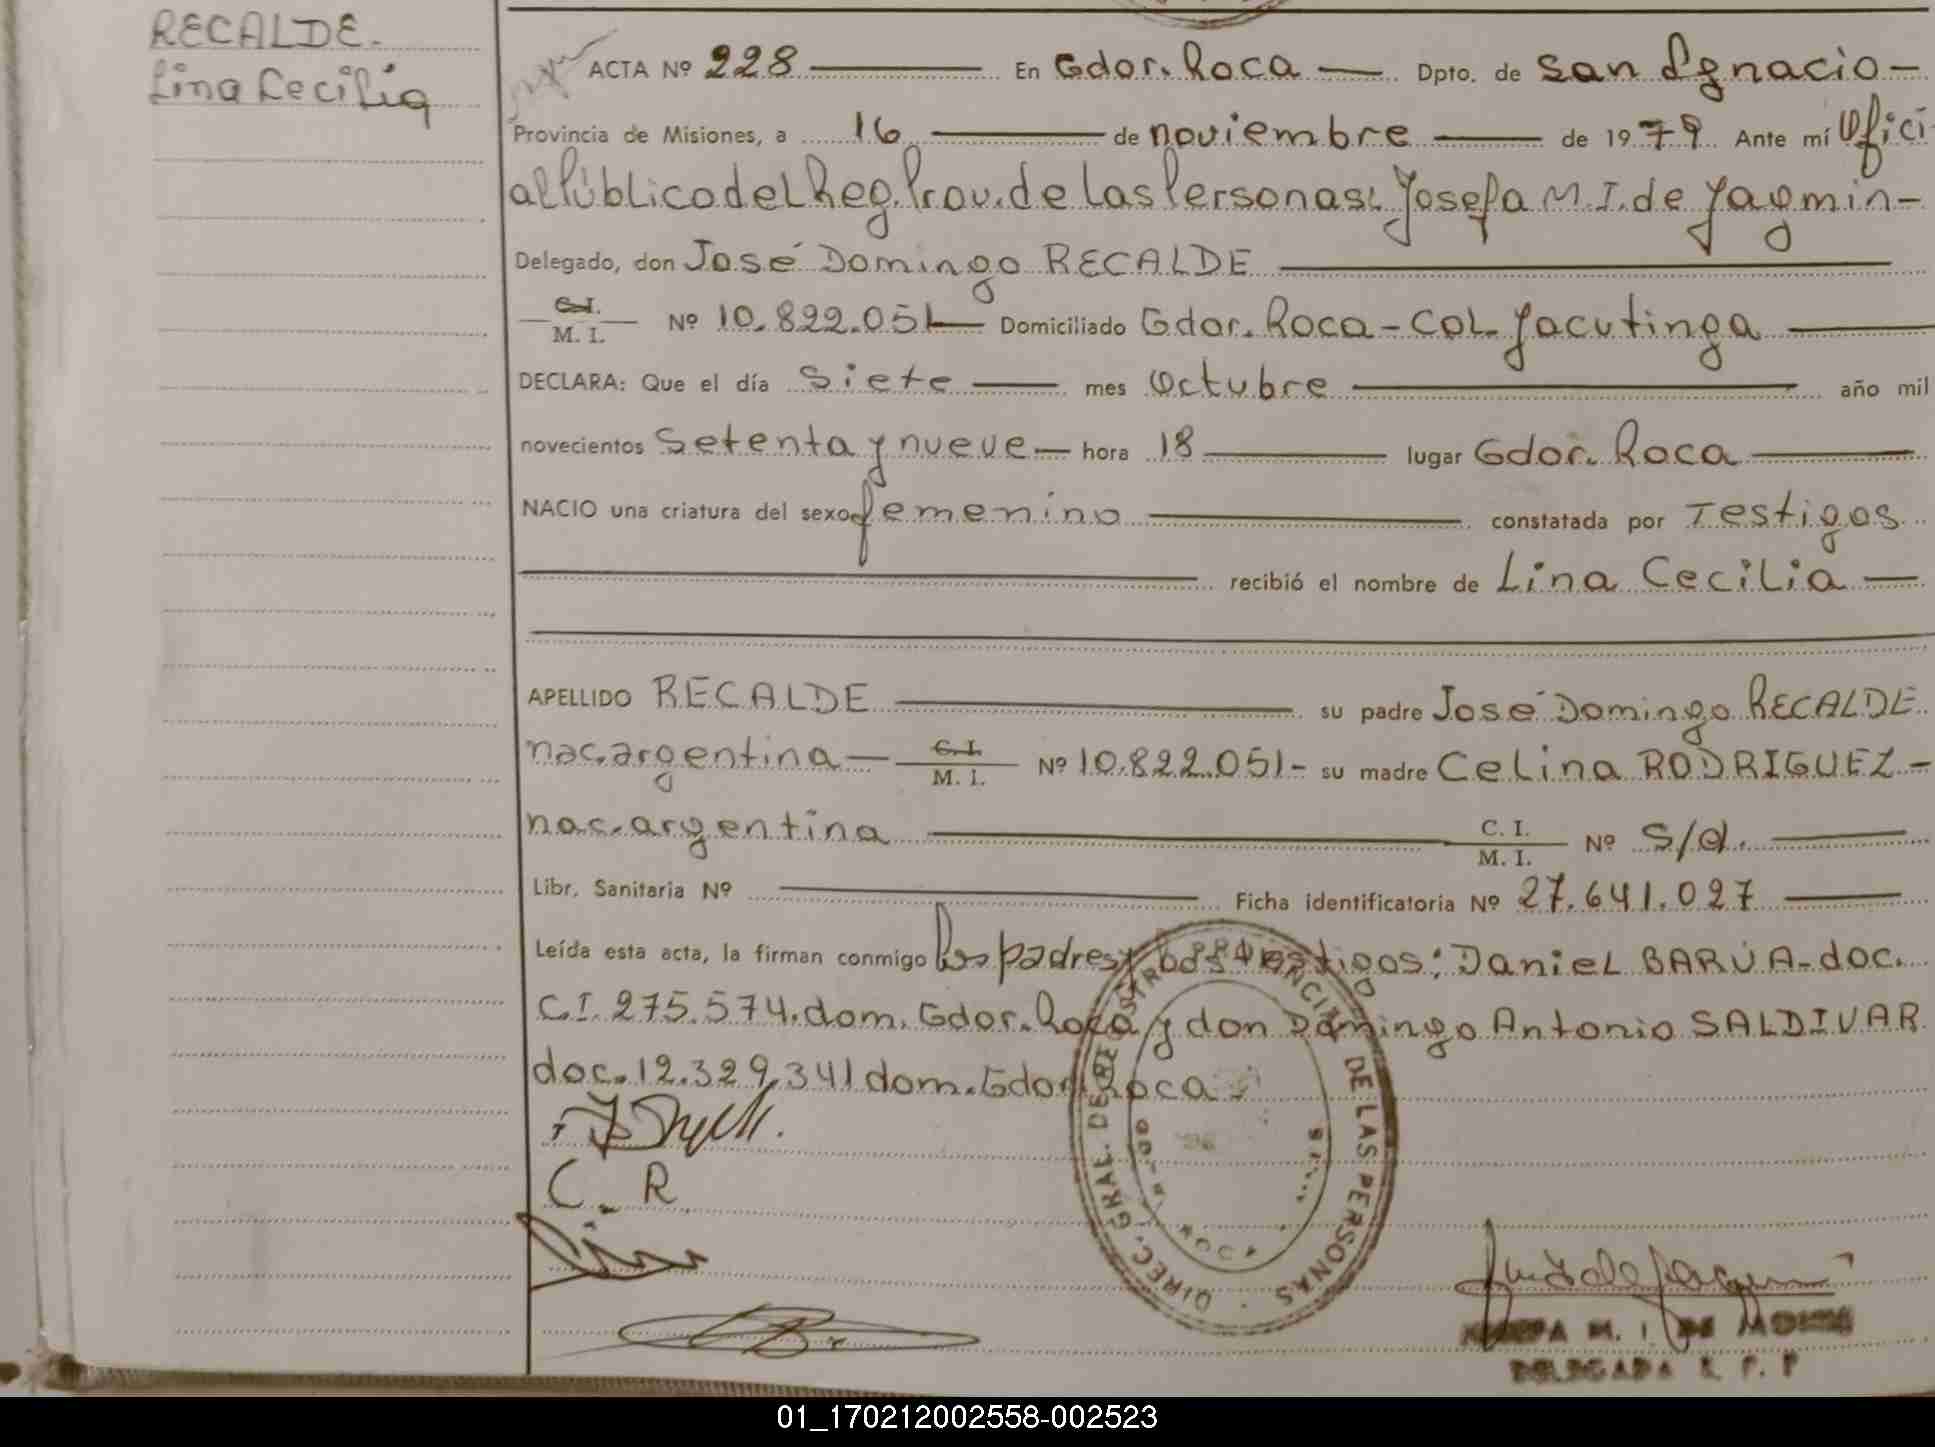 RECALDE.
Lina Cecilia
ACTA Nº 228 En Gdor. Roca Dpto. de San Ignacio
Provincia de Misiones, a 16 de noviembre de 1979 Ante mí Ofici
al Público del Reg. Prov. de las Personas: Josefa M. I. de Yagmin
Delegado, don José Domingo RECALDE
C. I.
M. I. Nº 10.822.051 Domiciliado Gdor. Roca - COL. Yacutinga
DECLARA: Que el día siete mes Octubre año mil
novecientos setenta y nueve hora 18 lugar Gdor. Roca
NACIO una criatura del sexo femenino constatada por Testigos
recibió el nombre de Lina Cecilia
APELLIDO RECALDE su padre José Domingo RECALDE
nac. argentina C. I. M. I. Nº 10.822.051- su madre Celina RODRIGUEZ -
nac. argentina C. I. M. I. Nº S/d.
Libr. Sanitaria Nº Ficha identificatoria Nº 27.641.027
Leída esta acta, la firman conmigo los padres y los testigos: Daniel BARÚA - doc.
C.I. 275.574. dom. Gdor. Roca y don Domingo Antonio SALDIVAR
doc. 12.329.341 dom. Gdor. Roca
C. R
DIREC. GRAL. DE REGISTRO PROVINCIAL DE LAS PERSONAS
M. I. DE
DELEGADA R. P. P
01_170212002558-002523